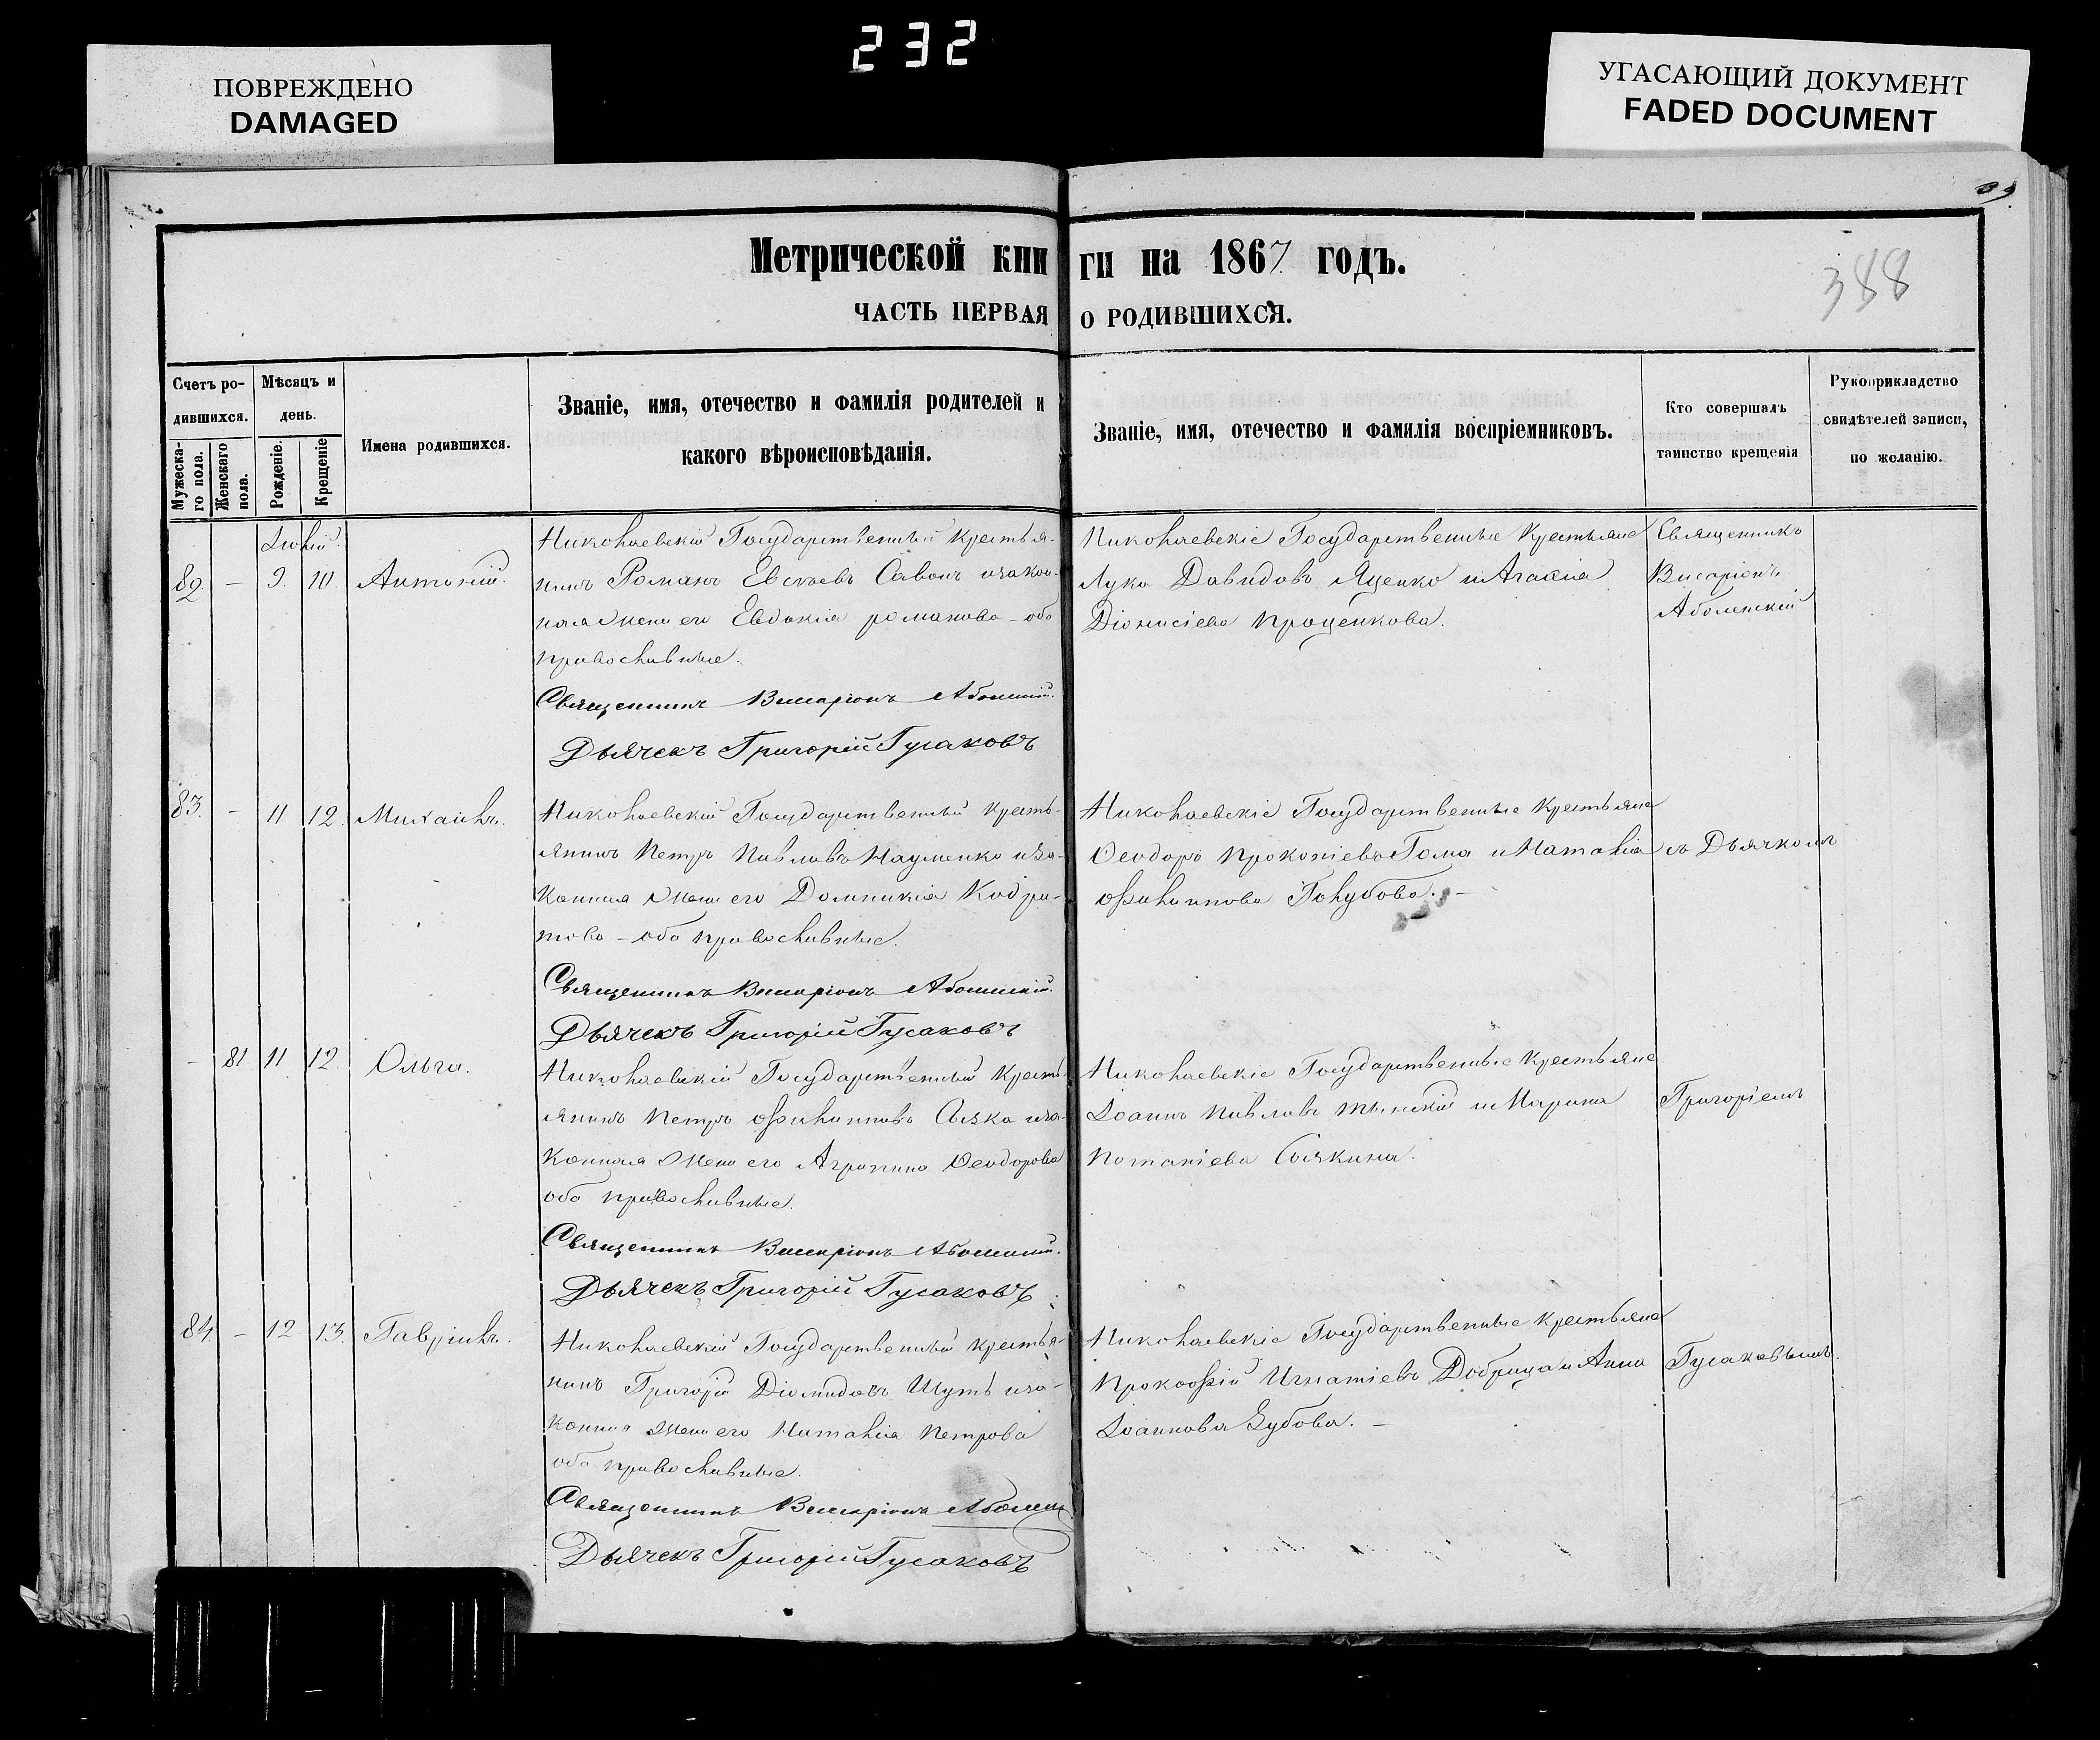 232
ПОВРЕЖДЕНО
DAMAGED
УГАСАЮЩИЙ ДОКУМЕНТ
FADED DOCUMENT
Метрической книги на 1867 годъ.
388
ЧАСТЬ ПЕРВАЯ О РОДИВШИХСЯ.
Счетъ родившихся.
Мужескаго пола.
Женскаго пола.
Мѣсяцъ и день.
Рожденіе.
Крещеніе
Имена родившихся.
Званіе, имя, отечество и фамилія родителей и
какого вѣроисповѣданія.
Званіе, имя, отечество и фамилія воспріемниковъ.
Кто совершалъ
таинство крещенія
Рукоприкладство
свидѣтелей записи,
по желанію.
Іюлій.
82. - 9. 10. Антоній.
Николаевскій Государственный крестья-
нинъ Романъ Савонъ и закон-
ная жена его Евдокія романова - оба
православные.
Священникъ Висаріонъ
Дьячекъ Григорій Гусаковъ
Николаевскіе Государственные Крестьяне
Лука Давидовъ Яценко и Агафія
Діонисіева Проценкова.
Священникъ
Висаріонъ
83. - 11 12. Михаилъ.
Николаевскій Государственный кресть-
янинъ Петръ Павловъ Науменко и за-
конная жена его Домникія Кодра-
това - оба православные.
Священникъ Висаріонъ
Дьячекъ Григорій Гусаковъ
Николаевскіе Государственные Крестьяне
Ѳеодоръ Прокопіевъ Гома и Наталія
Филиппова Голубова. -
съ Дьячкомъ
- 81 11 12. Ольга.
Николаевскій Государственный Кресть-
янинъ Петръ Филипповъ и за-
конная жена его Агрипина Ѳеодорова
оба православные.
Священникъ Висаріонъ
Дьячекъ Григорій Гусаковъ
Николаевскіе Государственные Крестьяне
Іоаннъ Павловъ и Марина
Потапіева
Григоріемъ
84. - 12 13. Гавріилъ.
Николаевскій Государственный крестья-
нинъ Григорій Діомидовъ Шуть и за-
конная жена его Наталія Петрова
оба православные.
Священникъ Висаріонъ
Дьячекъ Григорій Гусаковъ
Николаевскіе Государственные Крестьяне
Прокофій Игнатіевъ Добрица и Анна
Іоаннова Зубова. -
Гусаковымъ.